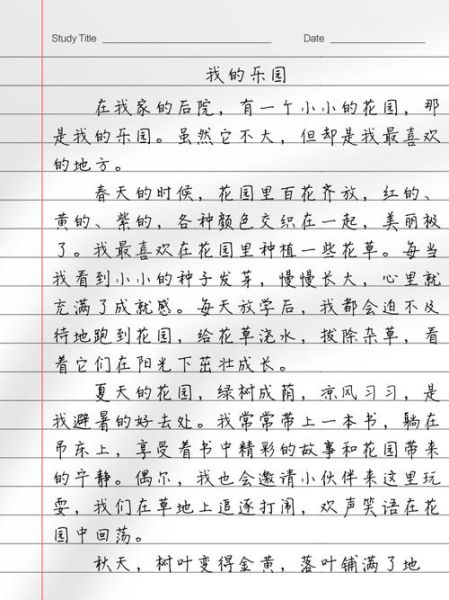 Study Title
Date
我的乐园
在我家的后院，有一个小小的花园，那
是我的乐园。虽然它不大，但却是我最喜欢
的地方。
春天的时候，花园里百花齐放，红的、
黄的、紫的，各种颜色交织在一起，美丽极
了。我最喜欢在花园里种植一些花草。每当
我看到小小的种子发芽，慢慢长大，心里就
充满了成就感。每天放学后，我都会迫不及
待地跑到花园，给花草浇水，拔除杂草，看
着它们在阳光下茁壮成长。
夏天的花园，绿树成荫，凉风习习，是
我避暑的好去处。我常常带上一本书，躺在
吊床上，享受着书中精彩的故事和花园带来
的宁静。偶尔，我也会邀请小伙伴来这里玩
耍，我们在草地上追逐打闹，欢声笑语在花
园中回荡。
秋天，树叶变得金黄，落叶铺满了地